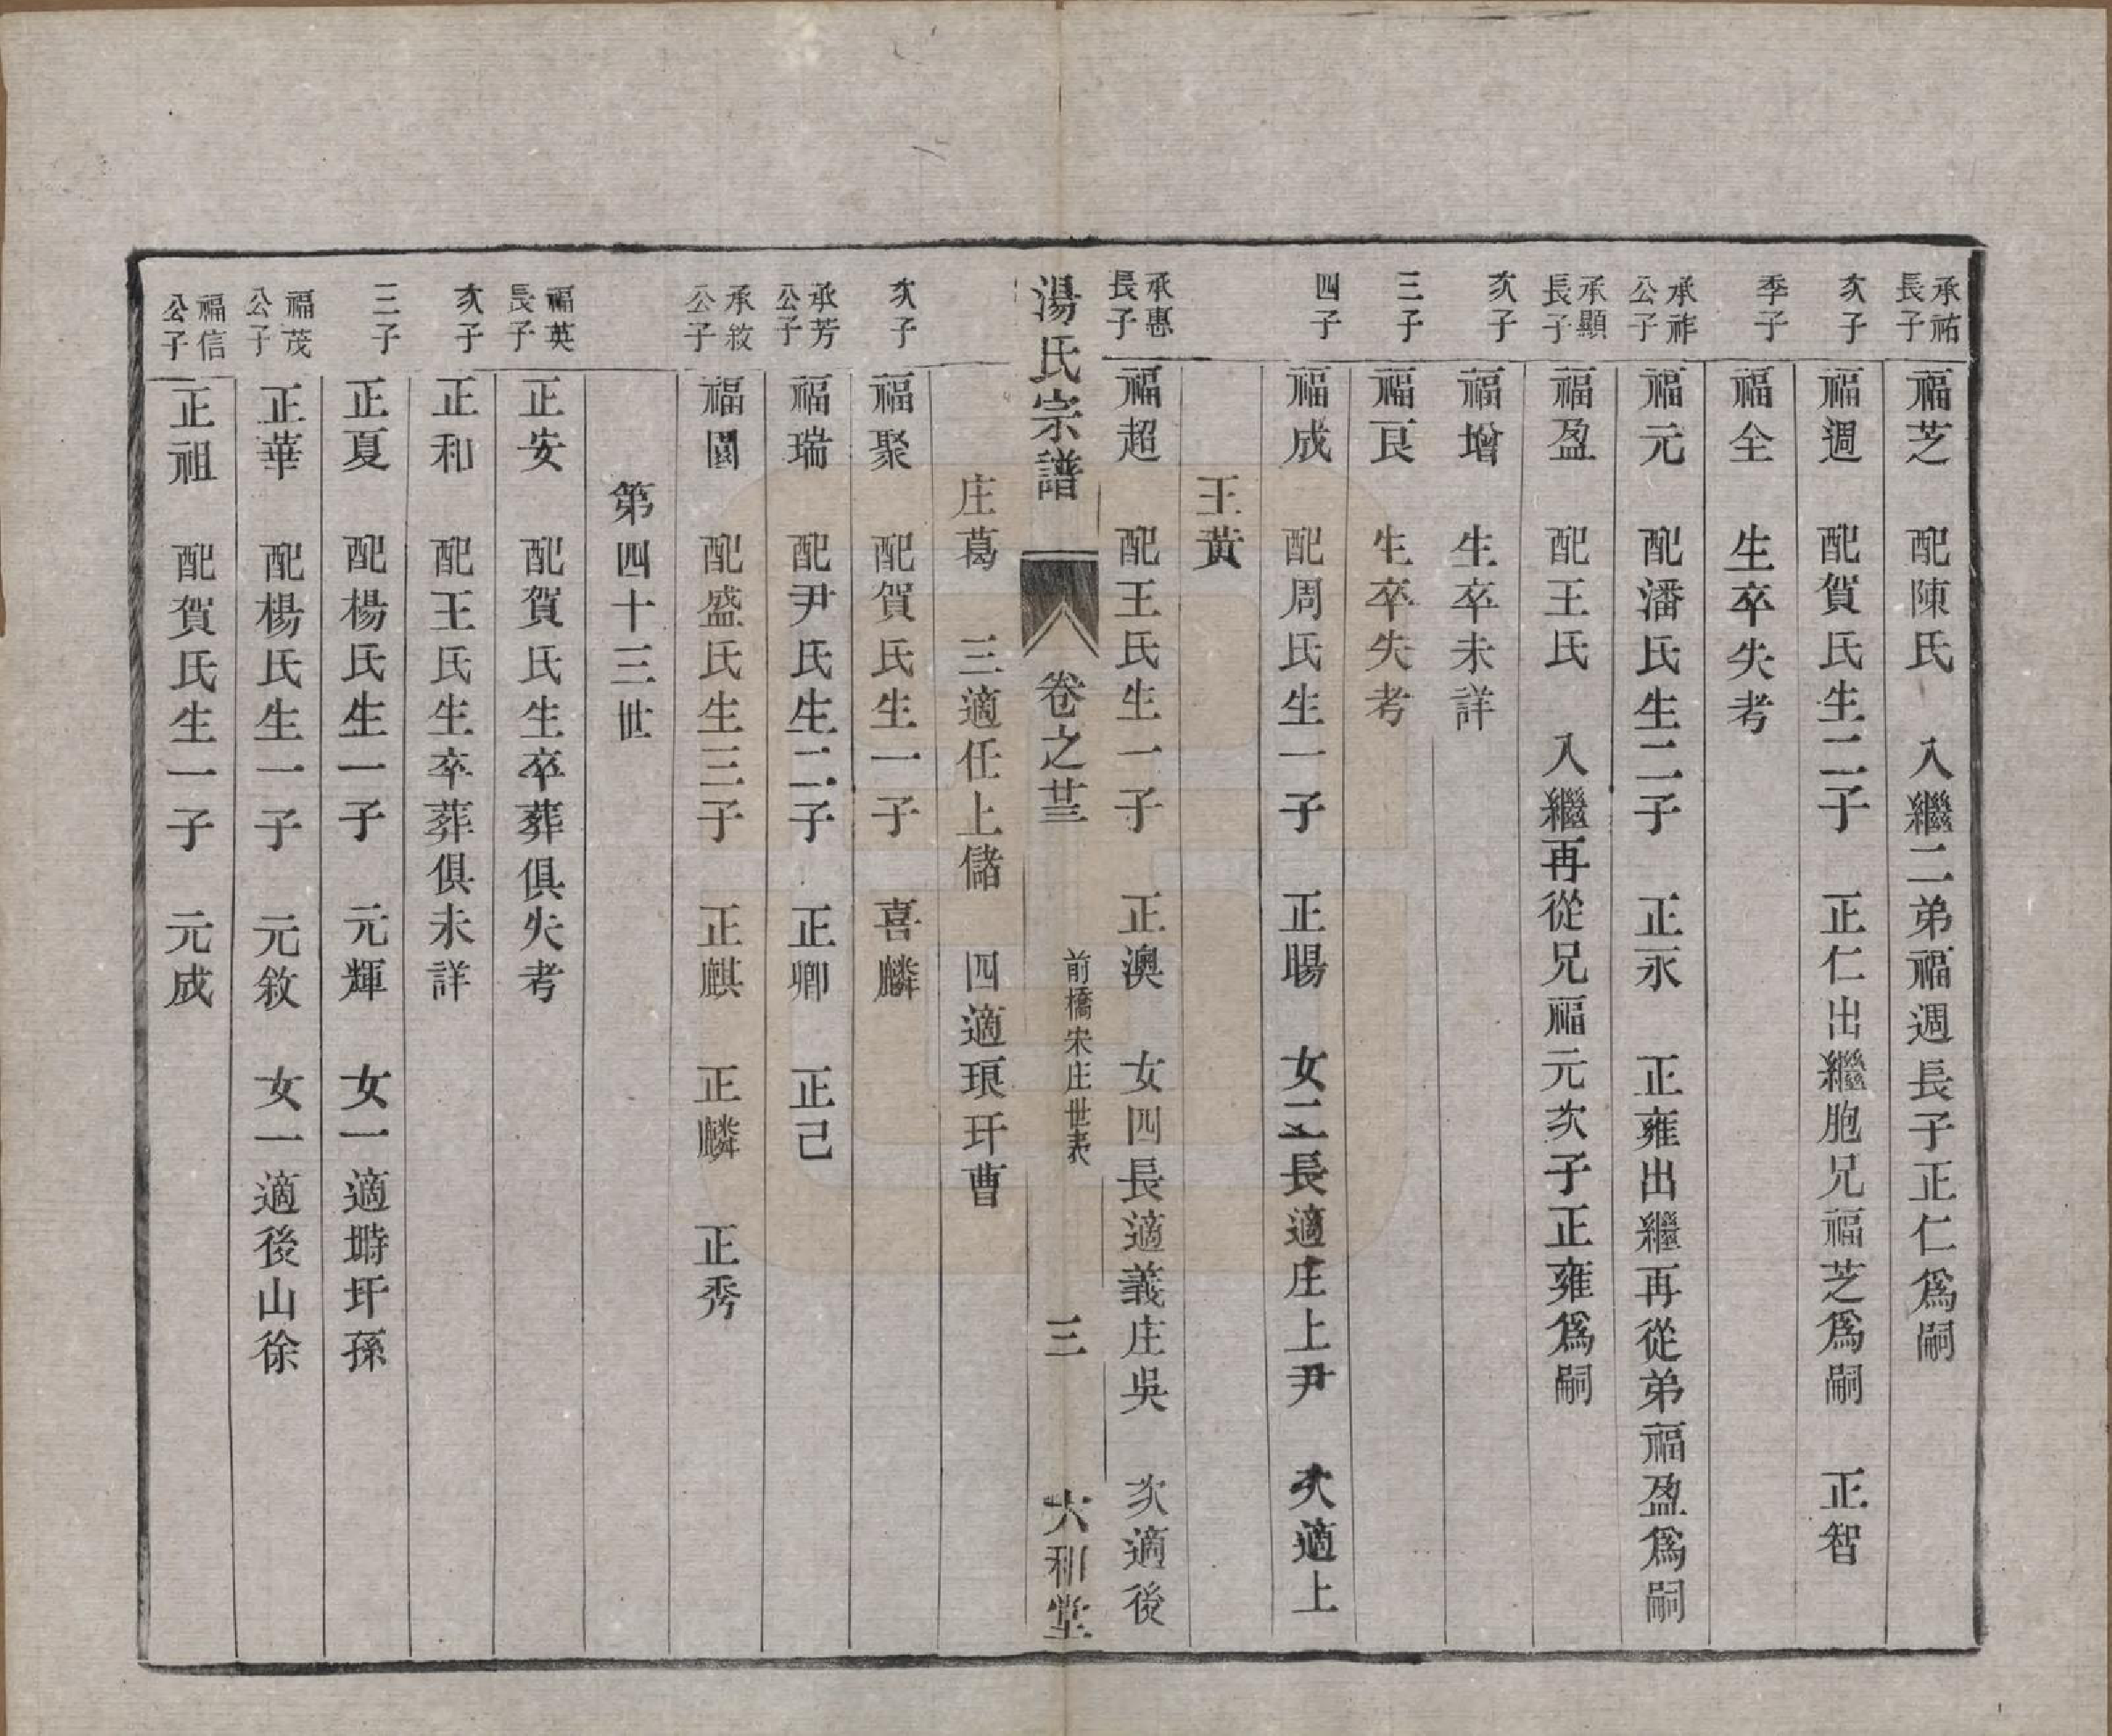 承祐長子 福芝 配陳氏 入繼二弟福週長子正仁爲嗣
次子 福週 配賀氏生二子 正仁出繼胞兄福芝爲嗣 正智
季子 福全 生卒失考
承祚公子 福元 配潘氏生二子 正永 正雍出繼再從弟福盈爲嗣
承顯長子 福盈 配王氏 入繼再從兄福元次子正雍爲嗣
次子 福增 生卒未詳
三子 福艮 生卒失考
四子 福成 配周氏生一子 正暘 女二長適庄上尹 次適上
王黃
承惠長子 福超 配王氏生一子 正澳 女四長適義庄吳 次適後
湯氏宗譜 卷之廿三 前橋宋庄世表 三 六和堂
庄葛 三適任上儲 四適琅玕曹
次子 福聚 配賀氏生一子 喜麟
承芳公子 福瑞 配尹氏生二子 正卿 正己
承敘公子 福園 配盛氏生三子 正麒 正麟 正秀
第四十三世
福英長子 正安 配賀氏生卒葬俱失考
次子 正和 配王氏生卒葬俱未詳
三子 正夏 配楊氏生一子 元輝 女一適塒圩孫
福茂公子 正華 配楊氏生一子 元敘 女一適後山徐
福信公子 正祖 配賀氏生一子 元成